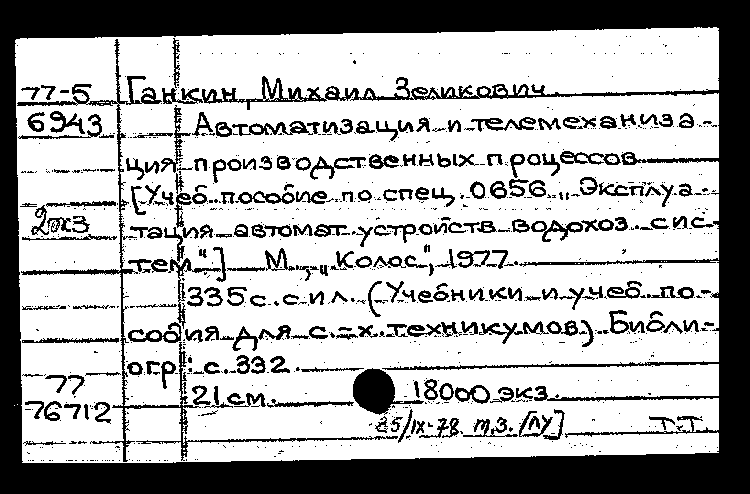 77-5 Ганкин, Михаил Зеликович.
6943 Автоматизация и телемеханиза-
ция производственных процессов
[Учеб. пособие по спец. 0656 „Эксплуа-
2экз тация автомат. устройств водохоз. сис-
тем"] М., „Колос", 1977.
335 с. с ил. (Учебники и учеб. по-
собия для с.-х. техникумов). Библи-
огр.: с. 332.
77 21 см. 18000 экз.
76712 25/IX-78 т.з. [ЛУ] Т.Т.